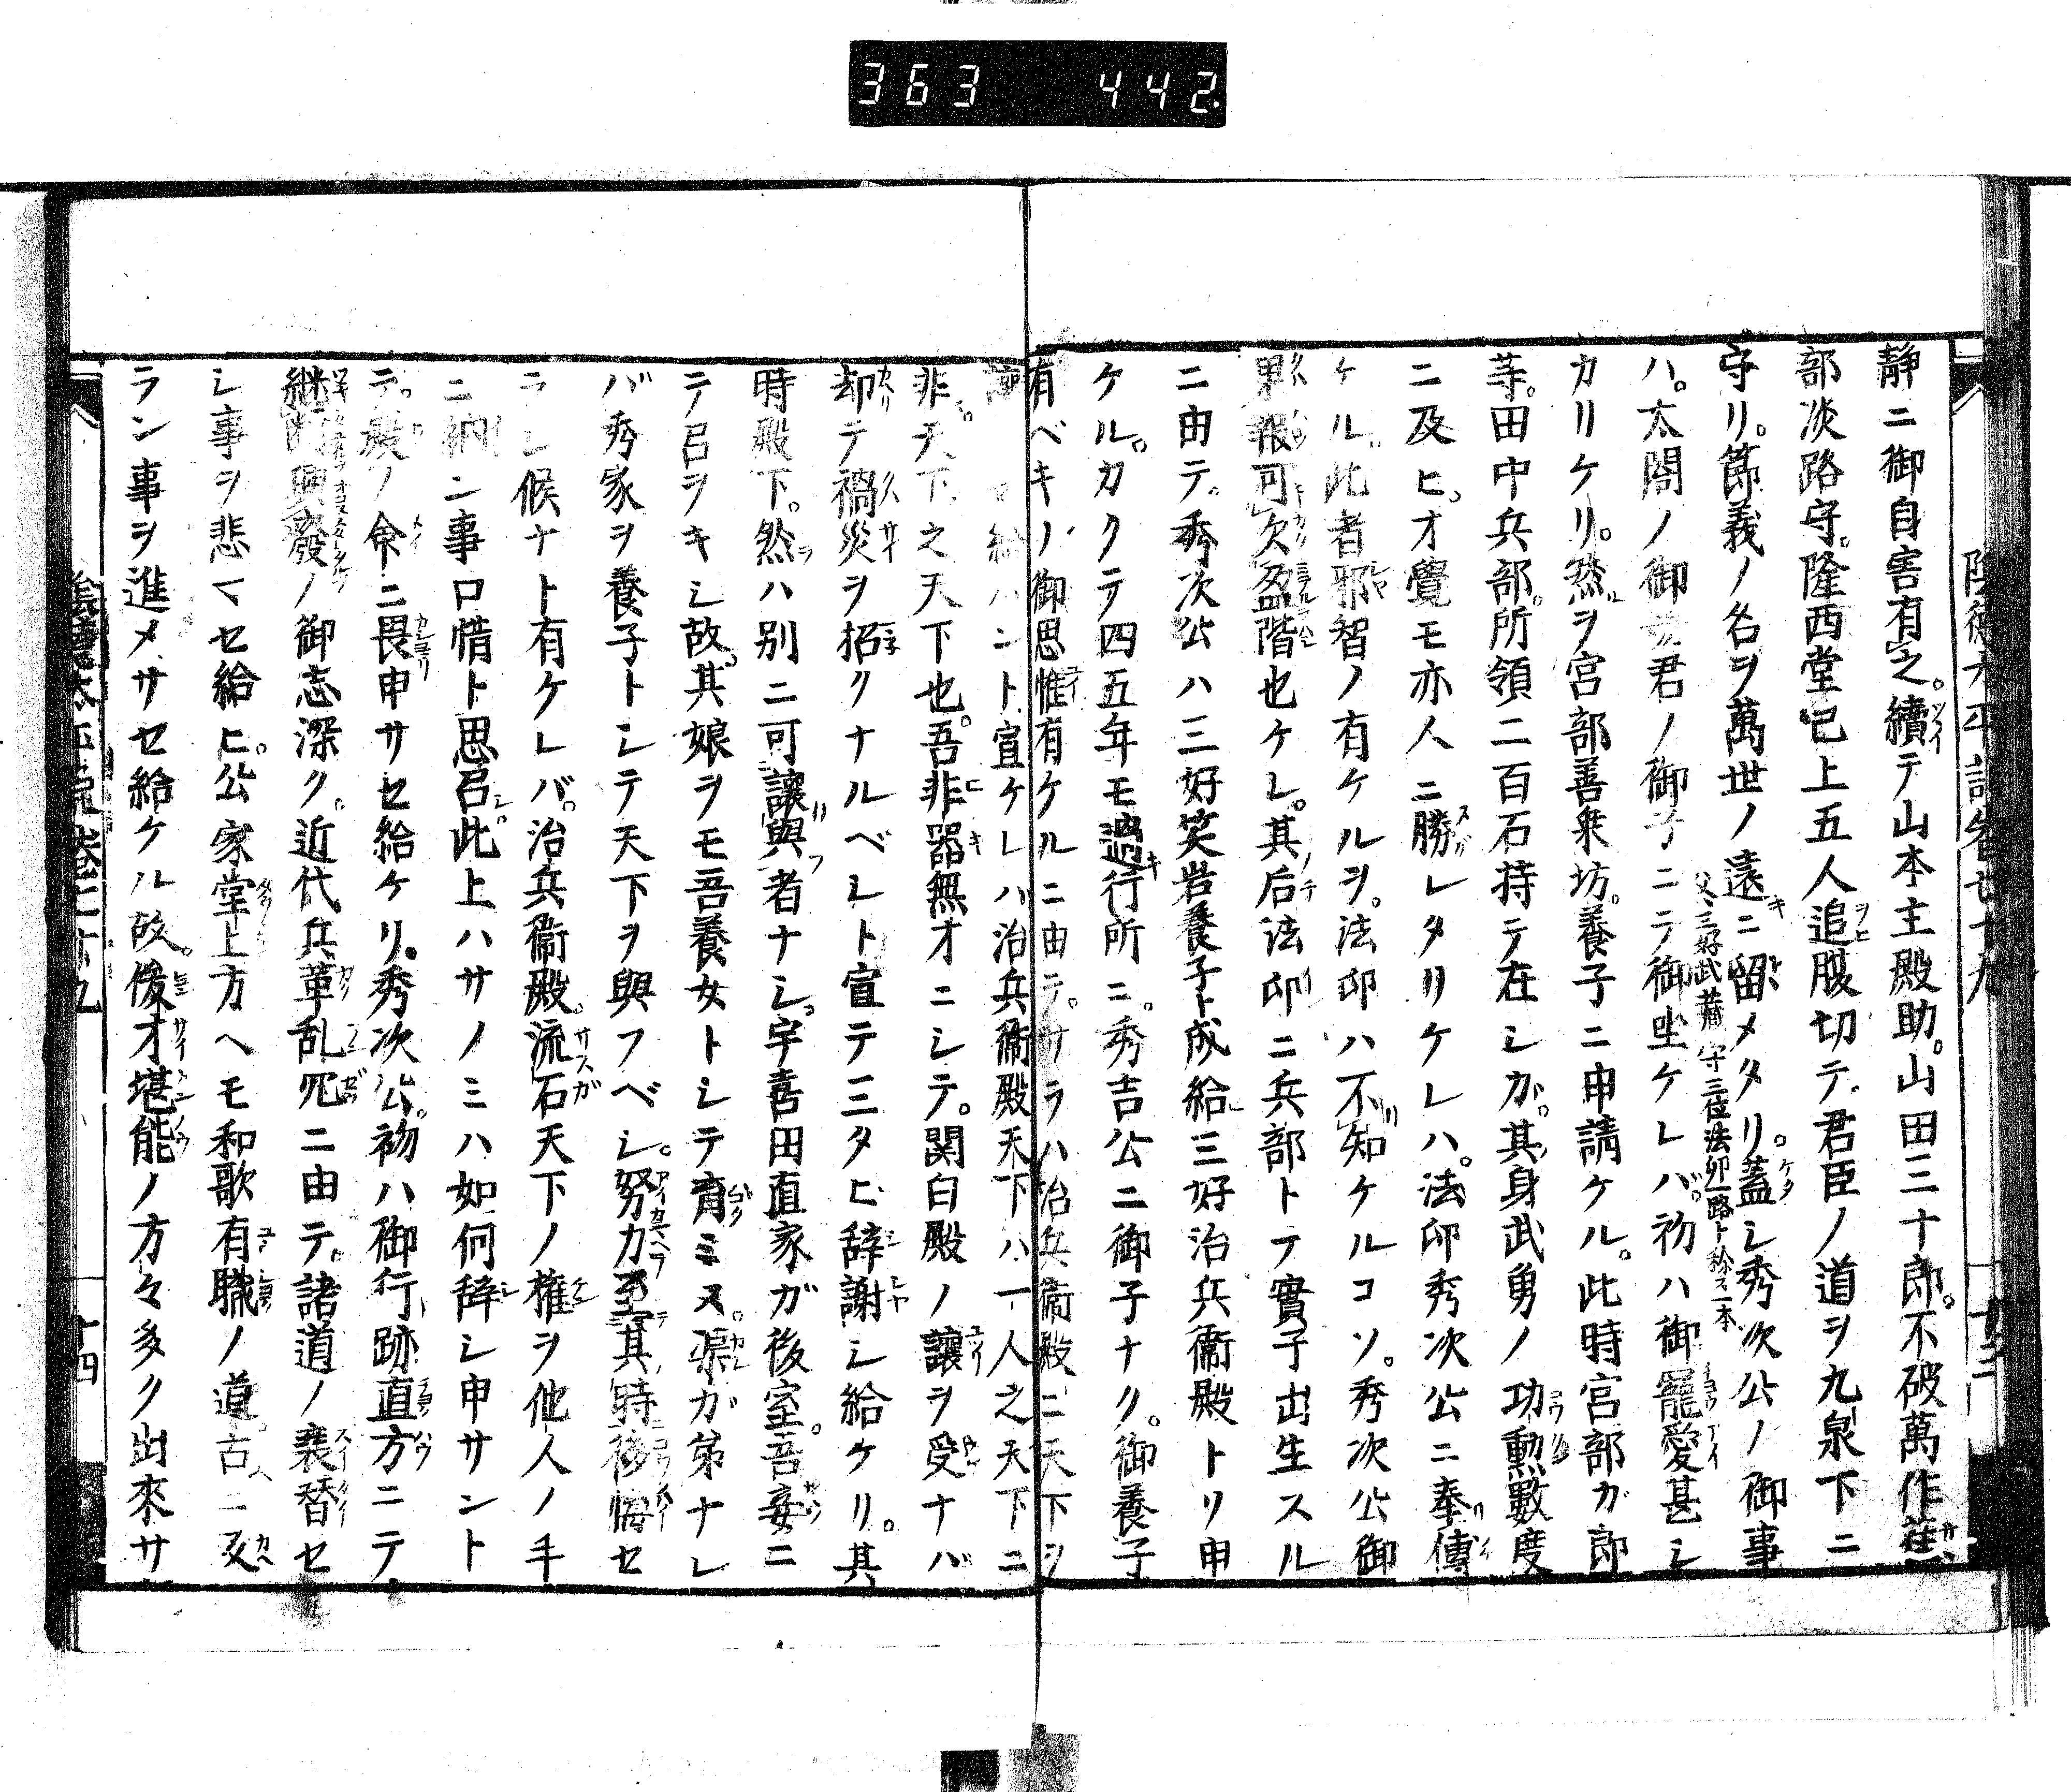 363 442
静ニ御自害有之。續テ山本主殿助。山田三十郎。不破萬作。雀
部淡路守。隆西堂已上五人追腹切テ。君臣ノ道ヲ九泉下ニ
守リ。節義ノ名ヲ萬世ノ遠ニ留メタリ。蓋シ秀次公ノ御事
ハ。太閤ノ御 君ノ御子 父ハ三好武藏守三位法印一路ト称ス一本 ニテ御坐ケレバ。初ハ御寵愛甚シ
カリケリ。然ヲ宮部善乗坊。養子ニ申請ケル。此時宮部ガ郎
等。田中兵部。所領二百石持テ在シガ。其身武勇ノ功勲數度
ニ及ヒ。才覺モ亦人ニ勝レタリケレハ。法印秀次公ニ奉傳
ケル。此者邪智ノ有ケルヲ。法印ハ不知ケルコソ。秀次公御
果報可欠盈階也ケレ。其后法印ニ兵部トテ實子出生スル
ニ由テ。秀次公ハ三好笑岩養子ト成給三好治兵衞殿トソ申
ケル。カクテ四五年モ過行所ニ。秀吉公ニ御子ナク。御養子
有ベキノ御思惟有ケルニ由テ。サラハ治兵衞殿ニ天下ヲ
讓 給ハントト宣ケレハ治兵衞殿天下ハ一人之天下ニ
非。天下之天下也。吾非器無才ニシテ。関白殿ノ讓ヲ受ナバ
却テ禍災ヲ招クナルベシト宣テ三タビ辞謝シ給ケリ。其
時殿下。然ハ別ニ可讓與者ナシ。宇喜田直家ガ後室。吾妾ニ
テ召ヲキシ故。其娘ヲモ吾養女トシテ育ミヌ。渠ガ弟ナレ
バ秀家ヲ養子トシテ天下ヲ與フベシ。努力至其時後悔セ
ラレ候ナト有ケレバ。治兵衞殿。流石天下ノ權ヲ他人ノ手
ニ納ン事口惜ト思召。此上ハサノミハ如何辞シ申サント
テ。殿ノ命ニ畏申サセ給ケリ。秀次公。初ハ御行跡直方ニテ。
継 興廢ノ御志深ク。近代兵革乱冗ニ由テ。諸道ノ衰替セ
シ事ヲ悲マセ給ヒ。公家堂上方ヘモ和歌有職ノ道。古ニ反
ラン事ヲ進メサセ給ケル故。俊才堪能ノ方々多ク出來サ
十四